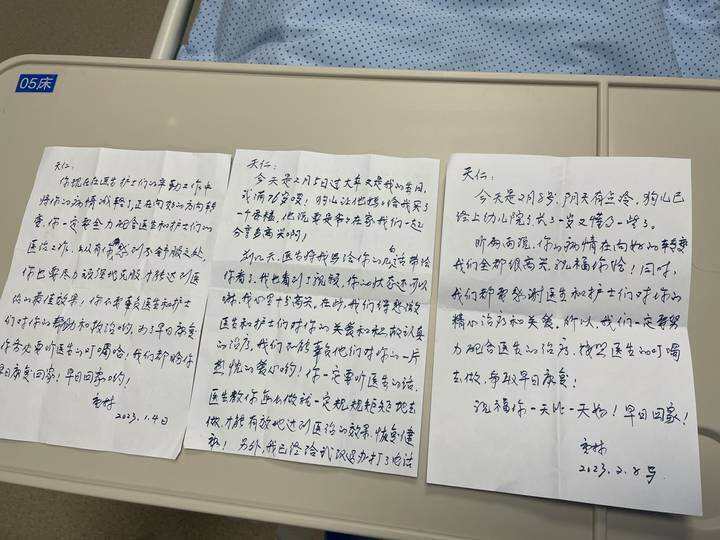 05床
天仁：
你现在在医生护士们的辛勤工作中
将你的病情减轻了，正在向好的方向转
变。你一定要全力配合医生和护士们的
医治工作。
你也要尽力
体的最佳效果，你不要辜负医生和护士
们对你的帮助和救治哟，为了早日康复
你务必要听医生的叮嘱哈，我们都盼你
早日康复回家！早日回家哟！
2023.1.4日
天仁：
今天是2月5日过大年又是我的生日，
我满
一个蛋糕，他说要是爷爷在家我们一起
分享多高兴啊！
前几天，医生将我写给你的信带给
你看了，我也看到了视频，你的状态还可以
嘛，我心里十分高兴。在此，我们得感谢
医生和护士们对你的关爱和积极认真
的治疗，我们不能辜负他们对你的一片
热忱的爱心哟！你一定要听医生的话，
医生教你怎么做就一定规规矩矩地去
做，才能有效地达到医治的效果，恢复健
康！另外，我已经给
打了电话
天仁：
今天是2月8号，阴天有点冷，狗儿已
经上幼儿院了，长了一岁又懂了一些了。
听雨雨说，你的病情在向好的转变
我们全都很高兴，祝福你哈！同时，
我们都要感谢医生和护士们对你的
精心治疗和关爱。所以，我们一定要努
力配合医生的治疗，按照医生的叮嘱
去做，争取早日康复！
祝福你一天比一天好！早日回家！
2023.2.8号